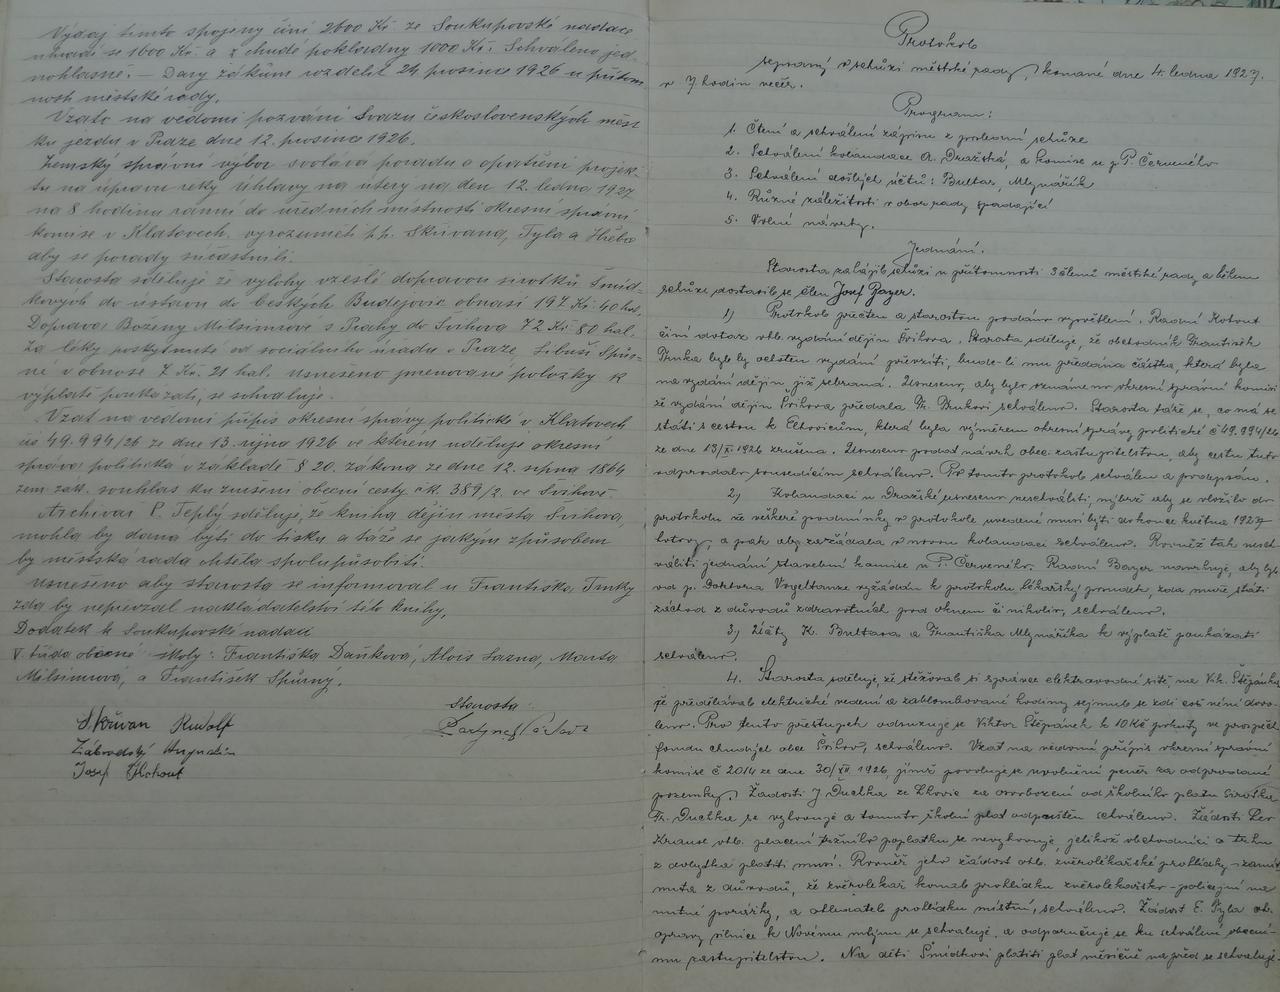 Výdaj tímto spojený činí 2600 Kč ze Soukupovské nadace
uhradí se 1600 Kč a z chudé pokladny 1000 Kč. Schváleno jed-
nohlasně. – Dary žákům rozdělit 24 prosince 1926 u přítom
nosti městské rady.
Vzato na vědomí pozvání Svazu československých měst
ku sjezdu v Praze dne 12. prosince 1926.
Zemský správní výbor svolává poradu o opatření projek-
tu na úpravu řeky Úhlavy na úterý na den 12. ledna 1927
na 8 hodinu ranní do úředních místností okresní správní
komise v Klatovech. vyrozuměti p.p. Skřivana, Tyla a
aby se porady súčastnili.
Starosta sděluje že výlohy vzešlé dopravou sirotků Šmíd-
kových do ústavu do Českých Budějovic obnáší 197 Kč 40 hal.
Doprava Boženy Milsimrové s Prahy do Švihova 72 Kč 80 hal.
Za léky poskytnuté od sociálního úřadu v Praze, Libuši Spur-
né v obnose 7 Kč. 21 hal. Usnešeno jmenované položky k
výplatě poukázati, se schvaluje.
Vzat na vědomí přípis okresní správy politické v Klatovech
čís 49.994/26 ze dne 13. října 1926 ve kterém uděluje okresní
správa politická v základě § 20. zákona ze dne 12. srpna 1864
zem. zák. souhlas ku zrušení obecní cesty čk. 389/2. ve Švihově.
Archivář P. Teplý sděluje, že kniha dějin města Švihova,
mohla by dána býti do tisku a táže se jakým způsobem
by městská rada chtěla spolupůsobiti.
Usnešeno aby starosta se informoval u Františka Trnky
zda by nepřevzal nakladatelství této knihy.
Dodatek k Soukupovské nadaci
V. třída obecné školy: Františka Daňková, Alois Lazna, Marta
Milsimrová, a František Spurný.
Starosta:
Skřivan Rudolf
Zábrodský
Josef Kohout
Protokol
sepsaný v schůzi městské rady, konané dne 4. ledna 1927.
v 7 hodin večer.
Program:
1. Čtení a schválení zápisu z poslední schůze
2. Schválení kolaudace A. Dražská, a komise u p. P. Červeného
3. Schválení došlých účtů: Bultas, Mlynářík
4. Různé záležitosti v obor rady spadající
5. Volné návrhy.
Jednání.
Starosta zahájil schůzi u přítomnosti 3 členů městské rady a během
schůze dostavil se člen Josef Bayer.
1) Protokol přečten a starostou podáno vysvětlení. Radní Kohout
činí dotaz ohl. vydání dějin Švihova. Starosta sděluje, že obchodník František
Trnka byl by ochoten vydání převzíti, bude-li mu předána částka, která byla
na vydání dějin již sebraná. Usneseno, aby bylo oznámeno okresní správní komisi
že vydání dějin Švihova předala Fr. Trnkovi schváleno. Starosta táže se, co má se
státi s cestou k, která byla výměrem okresní správy politické č 49.994/26
ze dne 13/X. 1926 zrušena. Usneseno podat návrh obec. zastupitelstvu, aby cestu tuto
odprodalo sousedícím schváleno. Po tomto protokol schválen a podepsán.
2) Kolaudaci u Dražské usneseno neschváliti, nýbrž aby se vložilo do
protokolu že veškeré podmínky v protokole uvedené musí býti do konce května 1927
hotovy, a pak aby zažádala o novou kolaudaci schváleno. Rovněž tak nesch
váliti jednání stavební komise u P. Červeného. Radní Bayer navrhuje, aby byl
od p. Doktora Vogeltanze vyžádán k protokolu lékařský posudek, zda může státi
záchod z důvodů zdravotních pod oknem či nikoliv, schváleno.
3) Účty K. Bultasa a Františka Mlynáříka k výplatě poukázati
schváleno.
4. Starosta sděluje, že stěžoval si správce elektrovodné sítě, na Vik. Štěpánka
že předělával elektrické vedení a zablombované hodiny sejmul se zdi což není dovo-
leno. Pro tento přestupek odsuzuje se Viktor Štěpánek k 10 Kč pokuty ve prospěch
fondu chudých obce Švihov, schváleno. Vzat na vědomí přípis okresní správní
komise č 2014 ze dne 30/XII 1926, jímž povoluje se uvolnění peněz za odprodané
pozemky. Žádosti J Duchka ze Lhovic za osvobození od školního platu sirotka
Fr. Duchka se vyhovuje a tomuto školní plat odpuštěn schváleno. Žádosti Leo
Krause ohl. placení tržního poplatku se nevyhovuje, jelikož obchodníci a
z dobytka platiti musí. Rovněž jeho žádost ohl. zvěrolékařské prohlídky – zamít
nuta z důvodů, že zvěrolékař konal prohlídku zvěrolékařsko-policejní na
nutné porážky, a ohledatel prohlídku místní, schváleno. Žádost E. Tyla ohl.
opravy silnice k Novému mlýnu se schvaluje, a odporučuje se ku schválení obecní-
mu zastupitelstvu. Na děti Šmídkovi platiti plat měsíčně napřed se schvaluje.